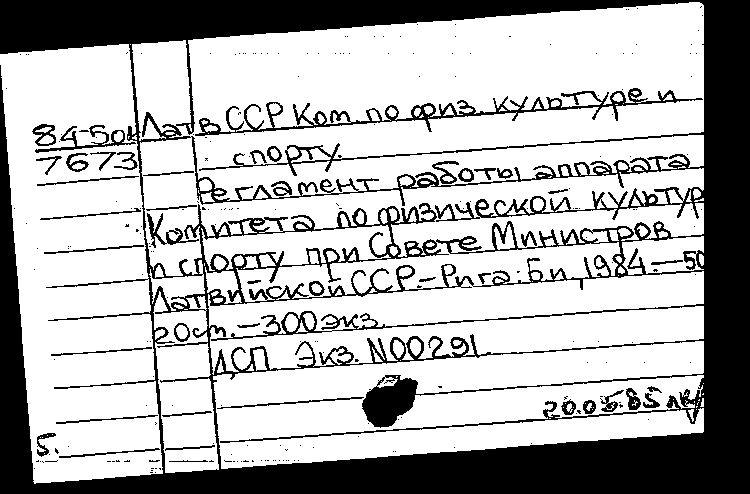 84-50к Латв ССР Ком. по физ. культуре и
7673 спорту.
Регламент работы аппарата
Комитета по физической культур
и спорту при Совете Министров
Латвийской ССР.-Рига: Би, 1984.-50
20см.-300экз.
ДСП Экз. N00291.
20.05.85
5.